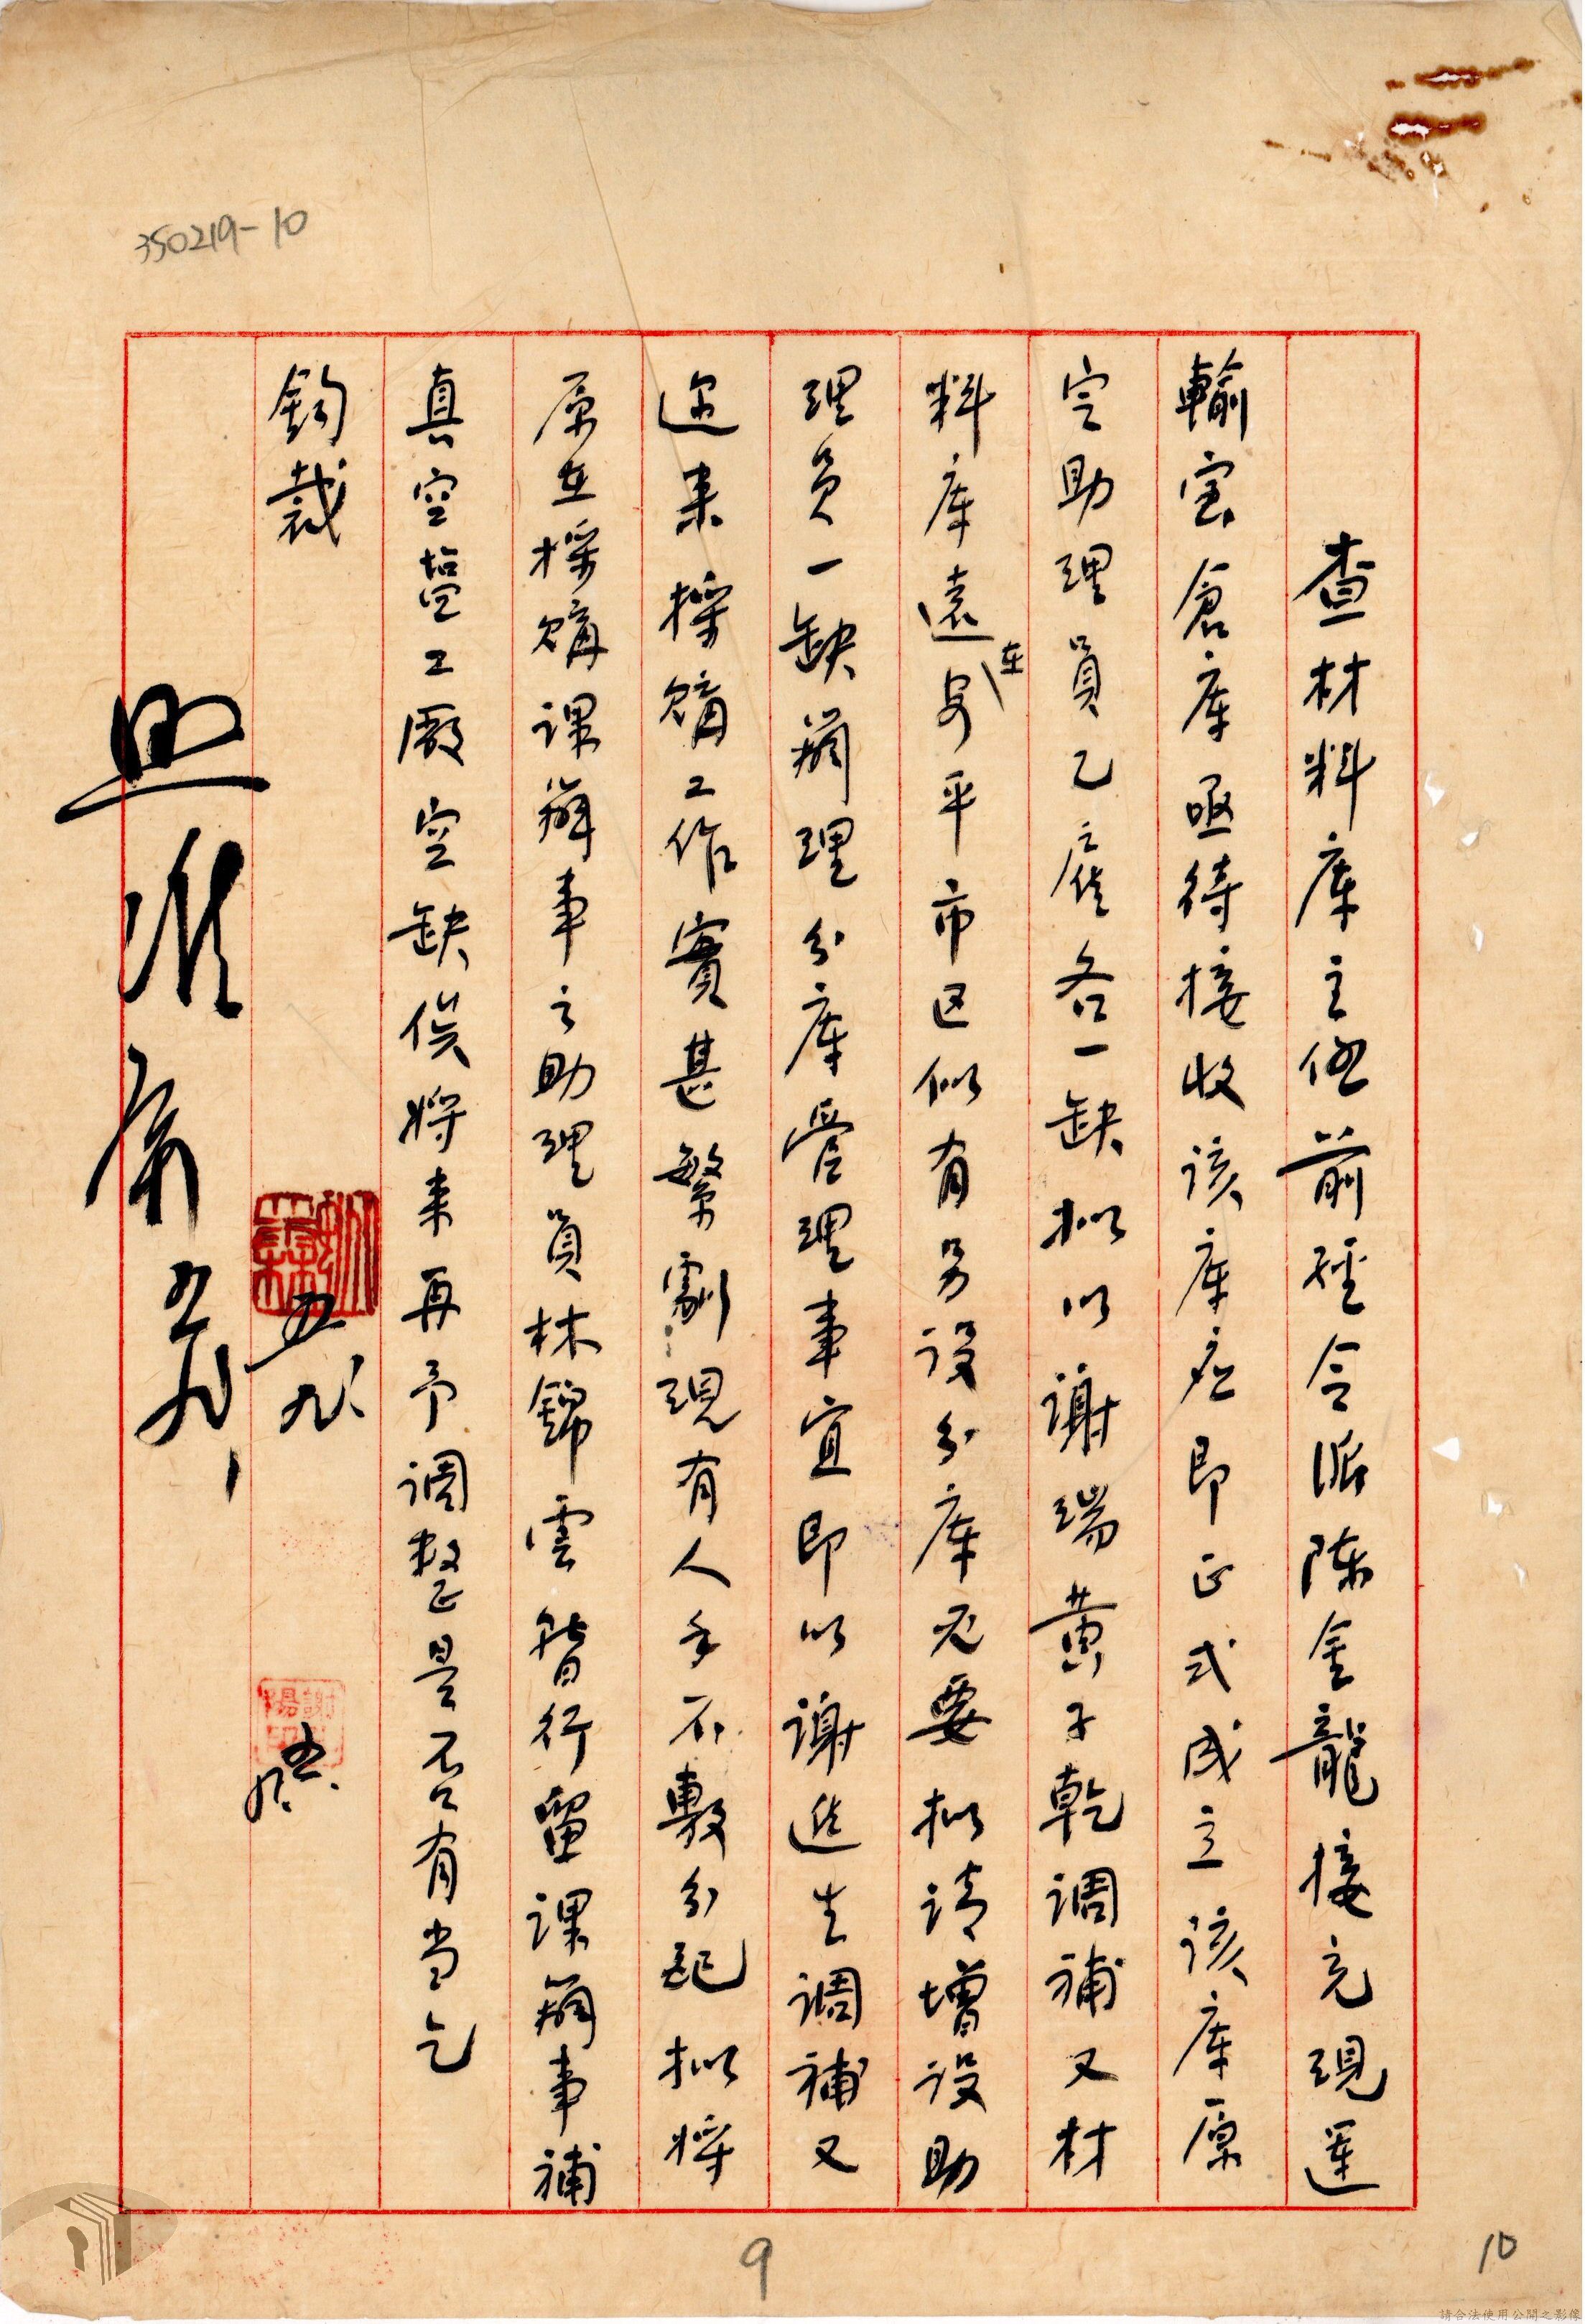 350219-10
查材料庫主任前經令派陈金龍接充現運
輸室倉庫亟待接收該庫应即正式成立該庫原
定助理員乙雇各一缺拟以謝瑞黄子乾調補又材
料庫遠在安平市区似有另设分庫必要拟请增设助
理員一缺辦理分庫管理事宜即以謝進生調補又
近来採購工作實甚繁劇現有人手不敷分配拟将
原在採購課辦事之助理員林錦雲暫行留課辦事補
真空塩工廠空缺俟将来再予調整是否有当乞
鈞裁
五九
謝
陽
印
五九
照准
9
10
請合法使用公開之影像